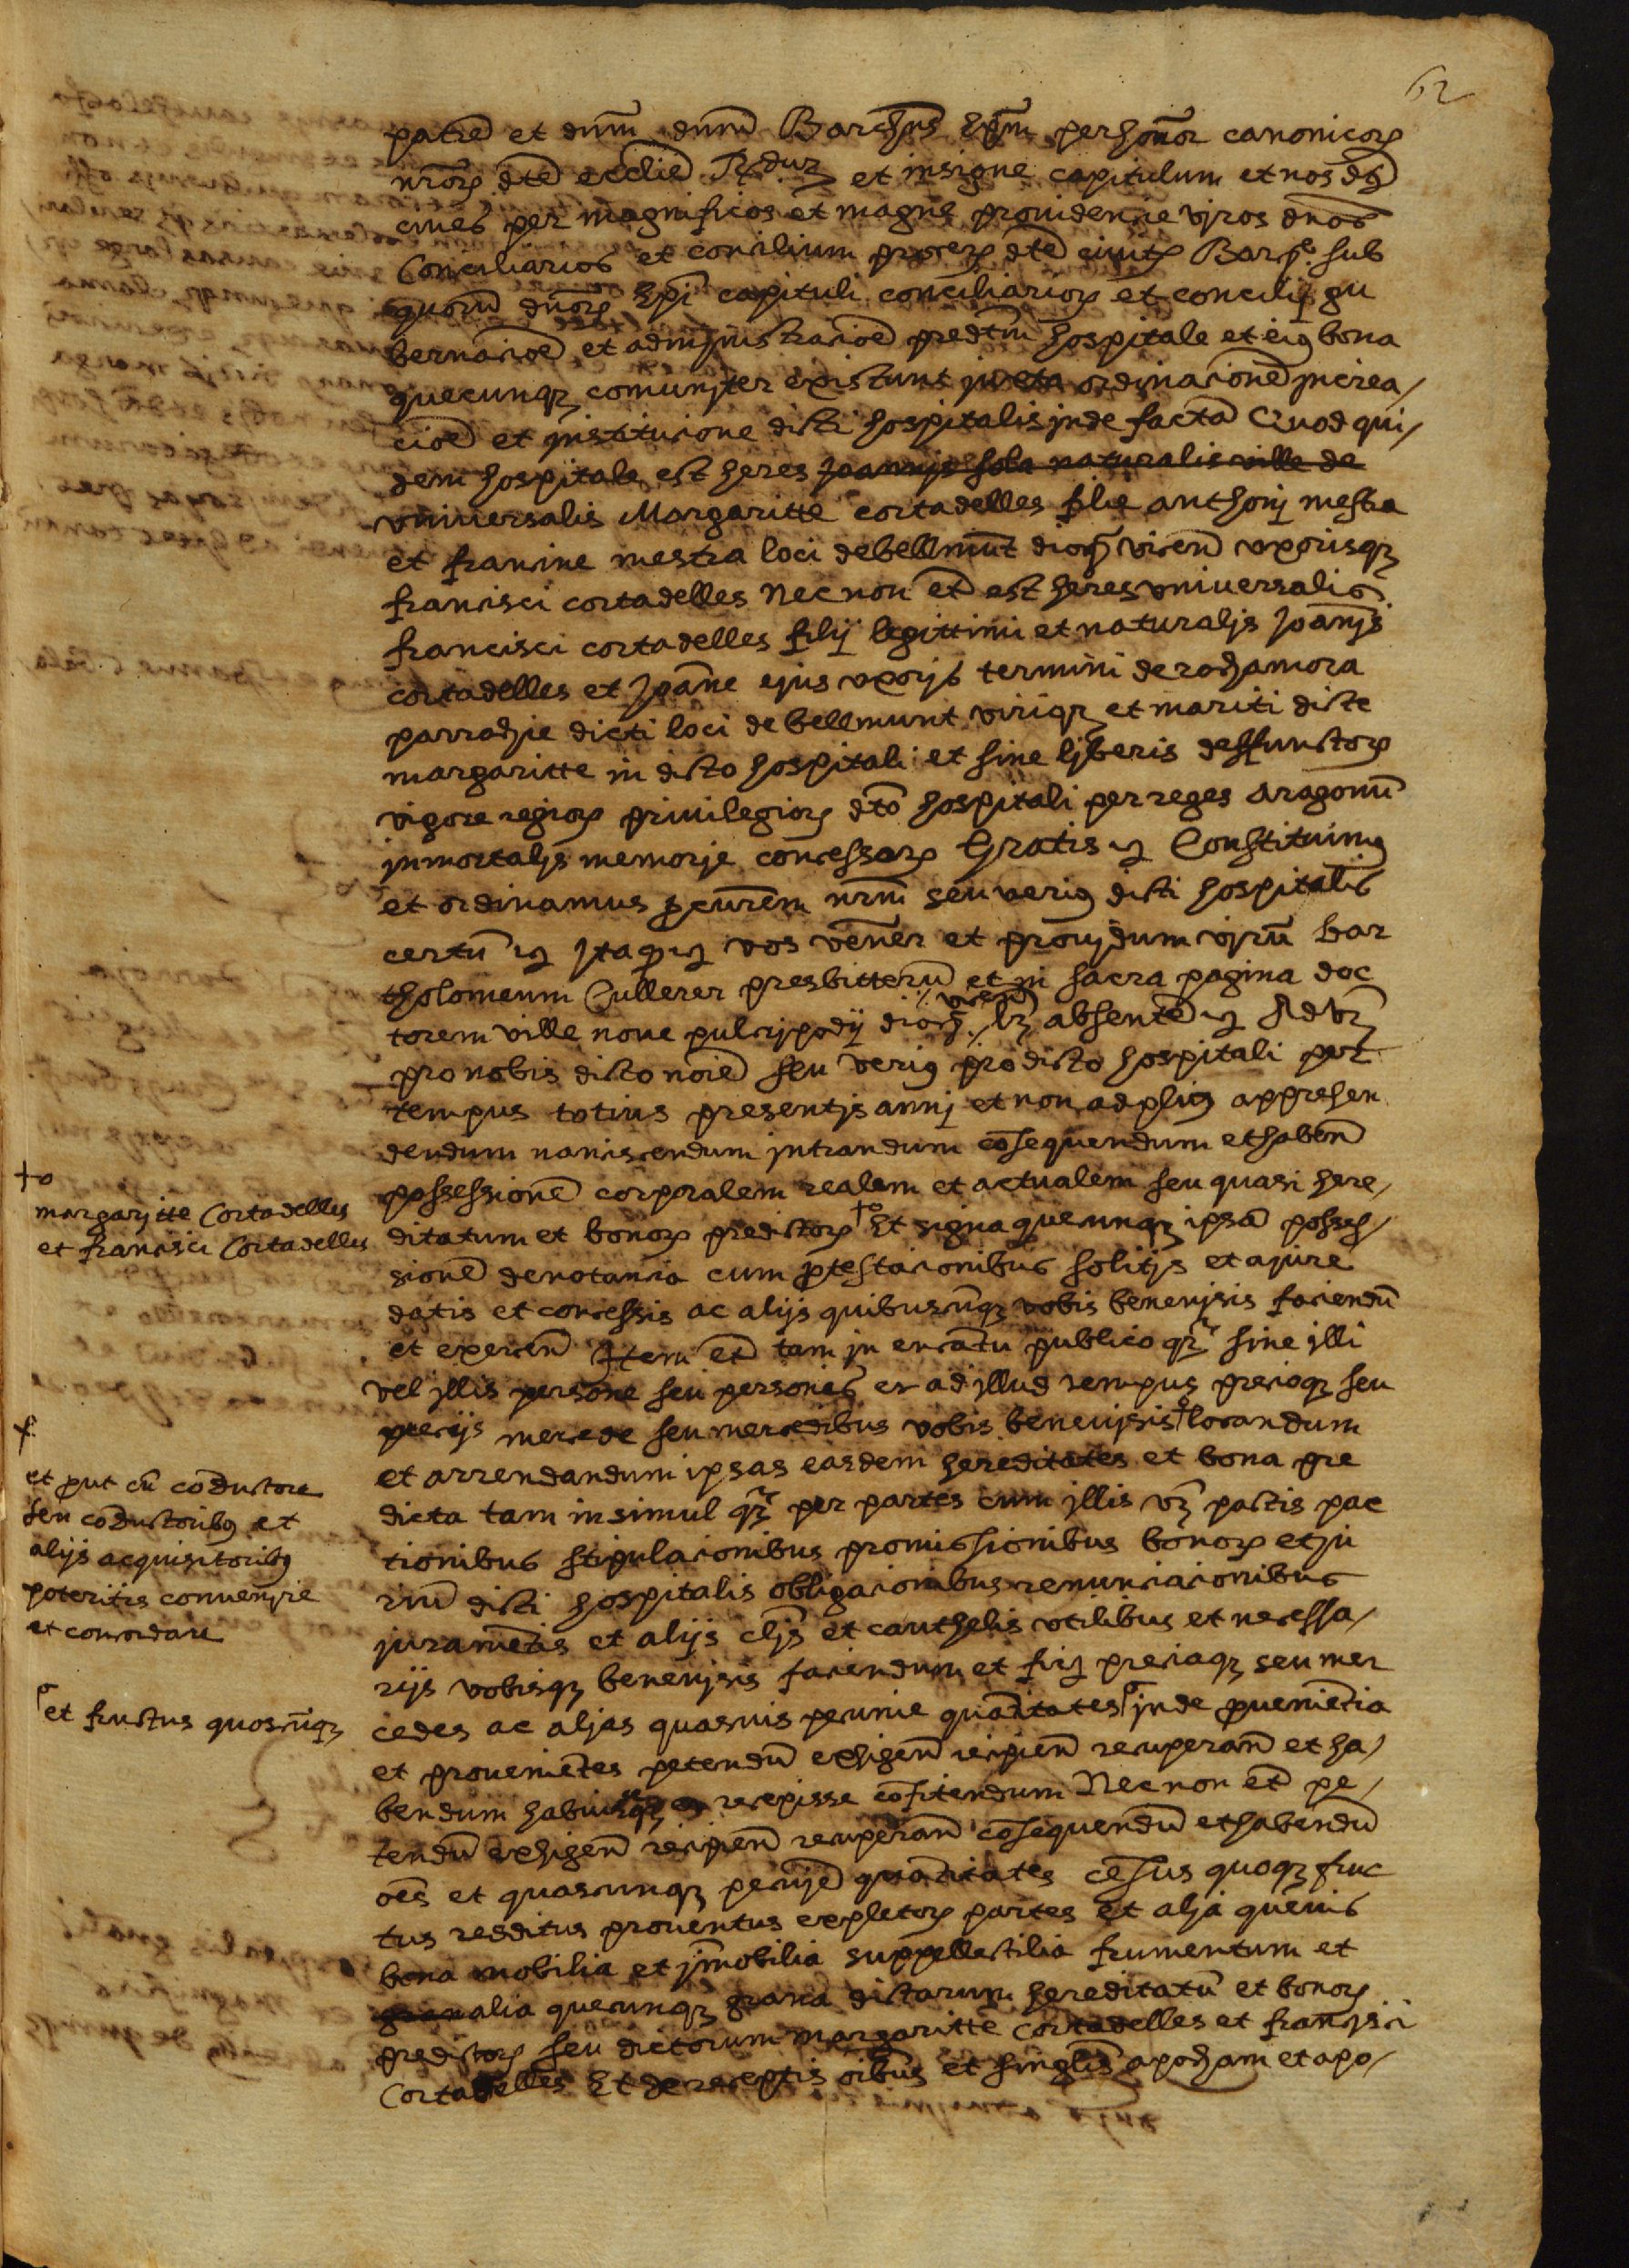 62
patre et dnm dnm Barchns Epm per honor canonicor
nror dte ecclie Rdur et insigne capitulum et nos dos
cives per magnificos et magne providencie viros dnos
Conciliarios et concilium procer dte civitr Barne sub
quorum dnor Epi capituli conciliarior et concilij gu
bernacioe et administracioe predtm hospitale et eius bona
quecunqz comuniter existunt juxta ordinacione in crea/
cioe et institucione dicti hospitalis jnde facta Quod qui/
dem hospitale est heres Joannis sola naturalis ville de
universalis Margaritte cortadelles filie anthonj mestra
et francine mestra loci de bellmunt dioc vicen uxorisqz
francisci cortadelles Nec non et est heres universalis
francisci cortadelles filij legittimi et naturalis Joanis
cortadelles et Joane ejus uxoris termini de rochamora
parrochie dicti loci de bellmunt viriqz et mariti dicte
margaritte in dicto hospitali et sine liberis deffunctor
vigore regior privilegior dto hospitali per reges Aragonu
jnmortalis memorje concessor Gratis etc Constituimus
et ordinamus procurem nrm seu verius dicti hospitalis
certu etc Jta qd etc vos vener et providum viru bar
tholomeum Cullerer presbitteru et in sacra pagina doc
torem ville nove pulcripodij dioc vicen lz absente etc Ad vz
pro nobis dicto noie seu verius pro dicto hospitali per
tempus totius presentis annj et non ad plus apprehen
dendum nanciscendum jntrandum cosequendum et haben
possessione corporalem realem et actualem seu quasi here/
ditatum et bonor predictor Et signa quecunqz ipsa posses/
sione denotancia cum protestacionibus solitis et a jure
datis et concessis ac alijs quibuscuqz vobis benevisis faciendu
et exercen Item et tam jn encantu publico qz sine illi
vel jllis persone seu personis et ad jllud tempus precioqz seu
precijs mercede seu mercedibus vobis benevisis locandum
et arrendandum ipsas easdem hereditates et bona pre
dicta tam insimul qz per partes cum jllis vz pactis pac
tionibus stipulacionibus promissionibus bonor et ju
riu dicti hospitalis obligacionibus renunciacionibus
juramentis et alijs clis et cauthelis utilibus et necessa/
rijs vobisqz benevisis faciendum et fir preciaqz seu mer
cedes ac alias quasvis pecunie quantitates jnde proveniecia
et provenietes petendu exhigen recipien recuperan et ha/
bendum habuisseqz et recepisse cofitendum Nec non et pe/
tendu exhigen recipien recuperan cosequendu et habendu
oes et quascunqz pecunie quantitates cesus quoqz fruc
tus redditus proventus expletor partes et alia quevis
bona mobilia et jmobilia suppellectilia frumentum et
alia quecunqz grana dictarum hereditatu et bonor
predictor seu dictorum margaritte cortadelles et francisci
Cortadelles Et de receptis oibus et singlis apocham et apo/
margaritte Cortadelles
et francisci Cortadelles
et prout cu coductore
seu coductoribus et
alijs acquisitoribus
poteritis convenire
et concordare
et fructus quoscuqz